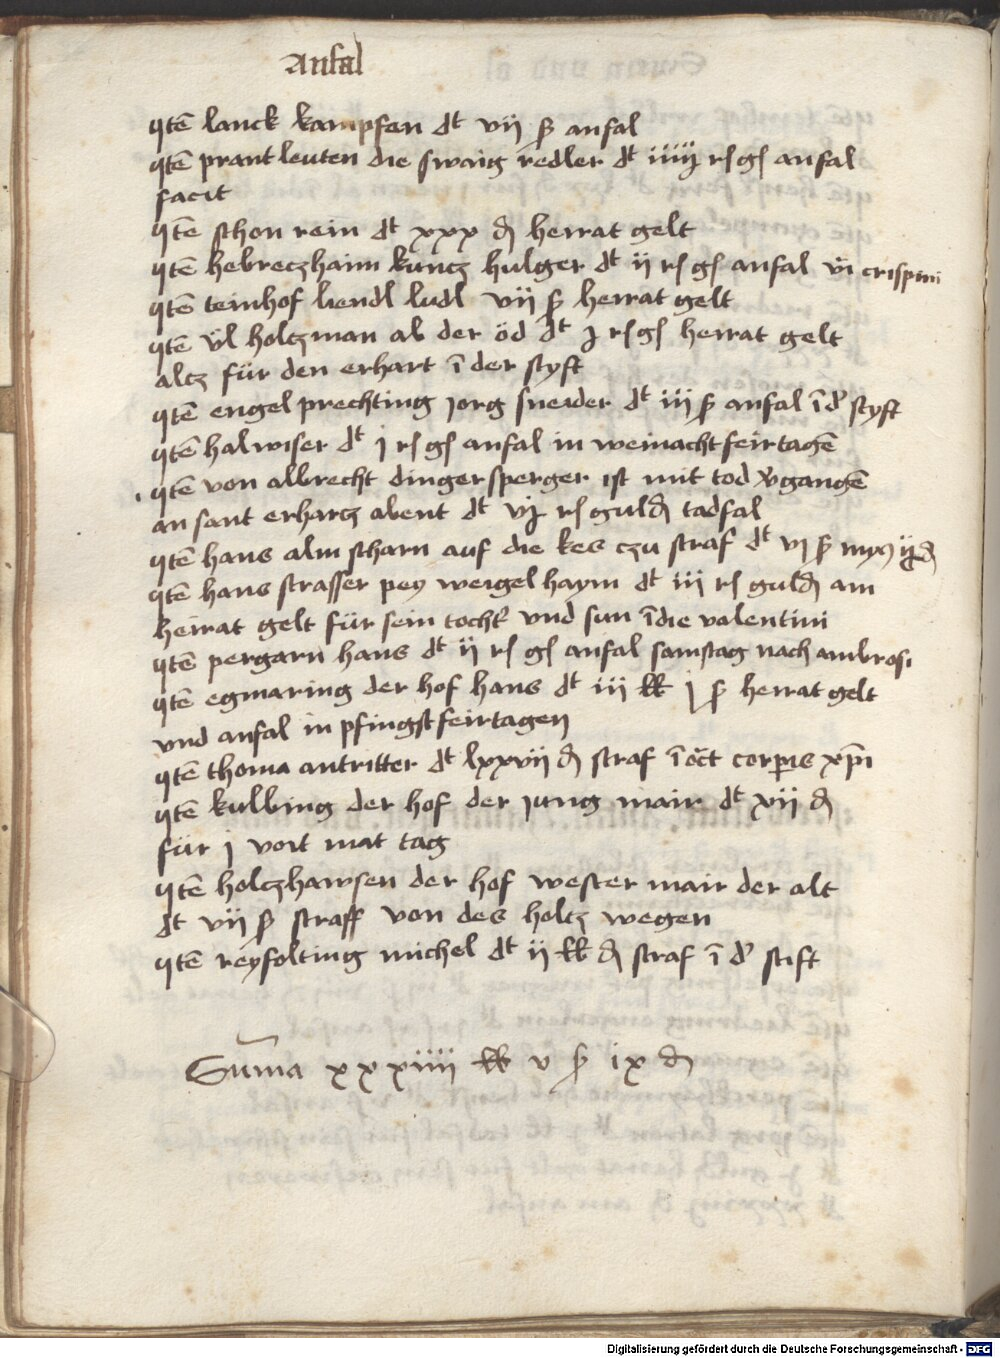 Anfal
Itē lanck kampfen dt vij ß anfal
Itē prantleuten die swaig redler dt iiij r gl anfal
facit
Itē schon rein dt xxx d heirat gelt
Itē hebreczhaim kuncz hulger dt ij r gl anfal crispini
Itē teinhof liendl ludl vij ß heirat gelt
Itē vl holczman ab der öd dt j r gl heirat gelt
alcz für den erhart ī der styft
Itē engel prechting jorg sneider dt iij ß anfal ī d' styft
Itē halwiser dt j r gl anfal in weinachtfeirtagē
Itē von albrecht dingersperger ist mit tod v'gangē
an sant erharcz abent dt vj r guld tadfal
Itē hans alm scharn auf die kes czu straf dt vj ß
Itē hans strasser pey weigelhaym dt iij r guld am
heirat gelt für sein tocht' vnd sun ī die valentini
Itē pergarn hans dt ij r gl anfal samstag nach ambrosi
Itē egmaring der hof hans dt iij lb j ß heirat gelt
vnd anfal in pfingstfeirtagen
Itē thoma antritter dt lxxvij d straf ī oct corp̄is xp̄i
Itē kulbing der hof der jung mair dt xij d
für j vort mat tag
Itē holczhawsen der hof wester mair der alt
dt vij ß straff von des holtz wegen
Itē reyfolting michel dt ij lb d straf ī d' stift
Sum̄a xxxiiij lb v ß ix d
Digitalisierung gefördert durch die Deutsche Forschungsgemeinschaft - DFG